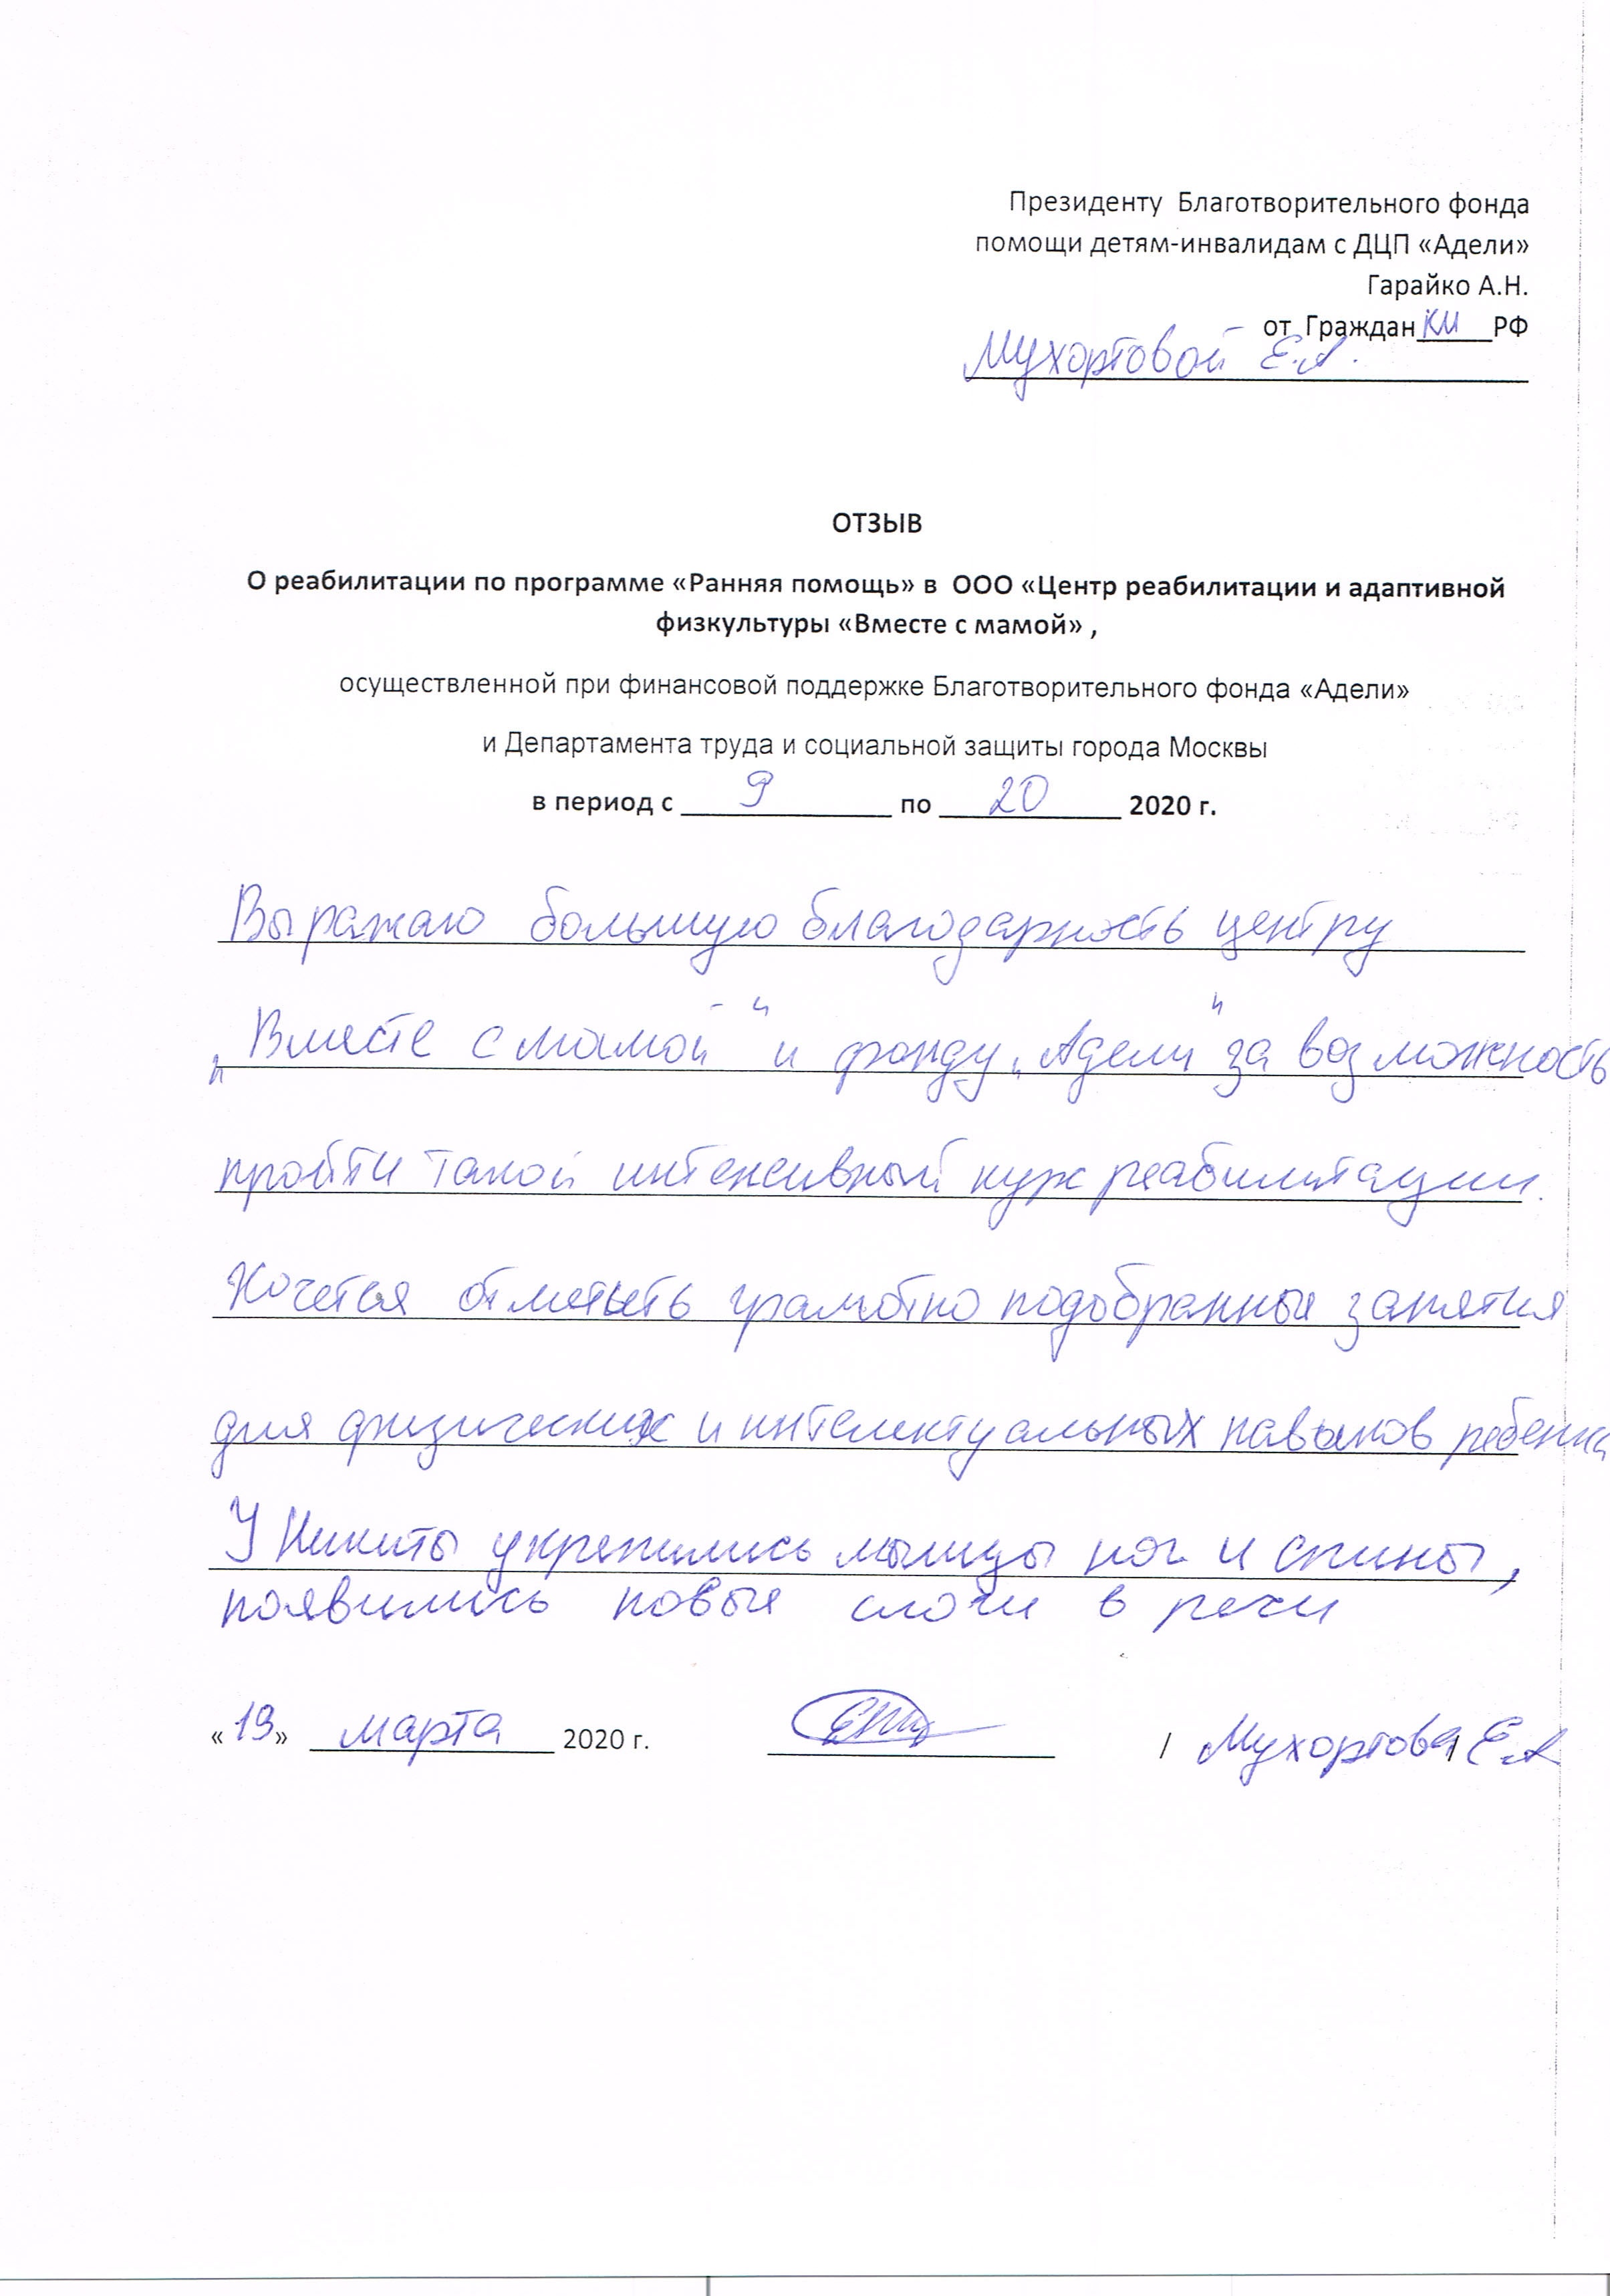 Президенту Благотворительного фонда
помощи детям-инвалидам с ДЦП «Адели»
Гарайко А.Н.
от Гражданки РФ
Мухортовой Е.А.
ОТЗЫВ
О реабилитации по программе «Ранняя помощь» в ООО «Центр реабилитации и адаптивной
физкультуры «Вместе с мамой» ,
осуществленной при финансовой поддержке Благотворительного фонда «Адели»
и Департамента труда и социальной защиты города Москвы
в период с 9 по 20 2020 г.
Выражаю большую благодарность центру
„Вместе с мамой" и фонду „Адели" за возможность
пройти такой интенсивный курс реабилитации.
Хочется отметить грамотно подобранные занятия
для физических и интелектуальных навыков ребенка
У Никиты укрепились мышцы ног и спины,
появились новые слоги в речи
«19» марта 2020 г. / Мухортова Е.А /